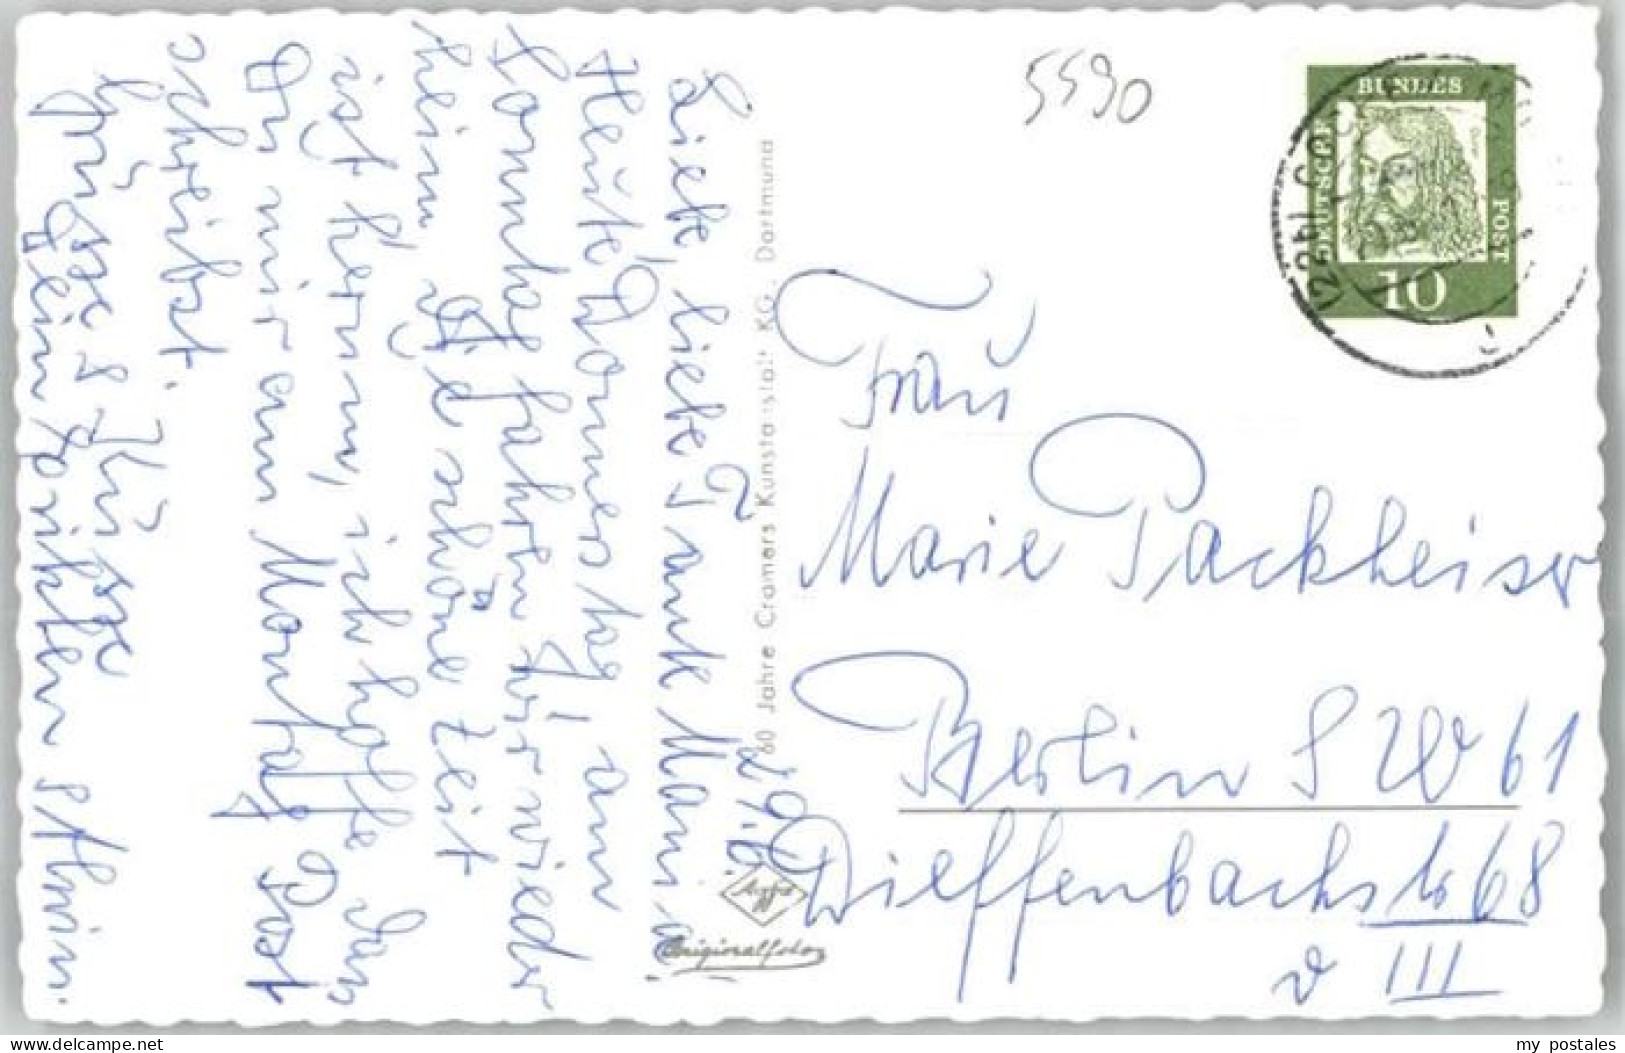 Liebe, liebe Tante Marie!
Heute Donnerstag, am
Sonntag fahren wir wieder
heim, die schöne Zeit
ist herum, ich hoffe das
Du mir am Montag Post
schreibst.
Grüsse & Küsse
Dein
60 Jahre Cramers Kunstanstalt KG., Dortmund
Agfa
Originalfoto
5590
DEUTSCHE BUNDESPOST
Dürer
10
(22b)
Frau
Marie Packheiser
Berlin SW 61
Dieffenbachstr 68
v III
delcampe.net
my_postales